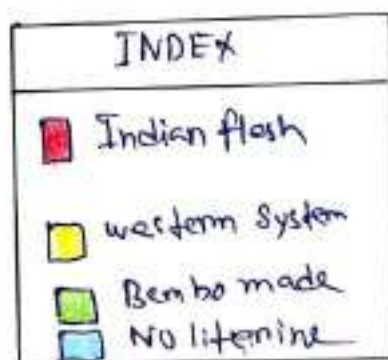 INDEX
Indian flash
western system
Bembo made
No litemine